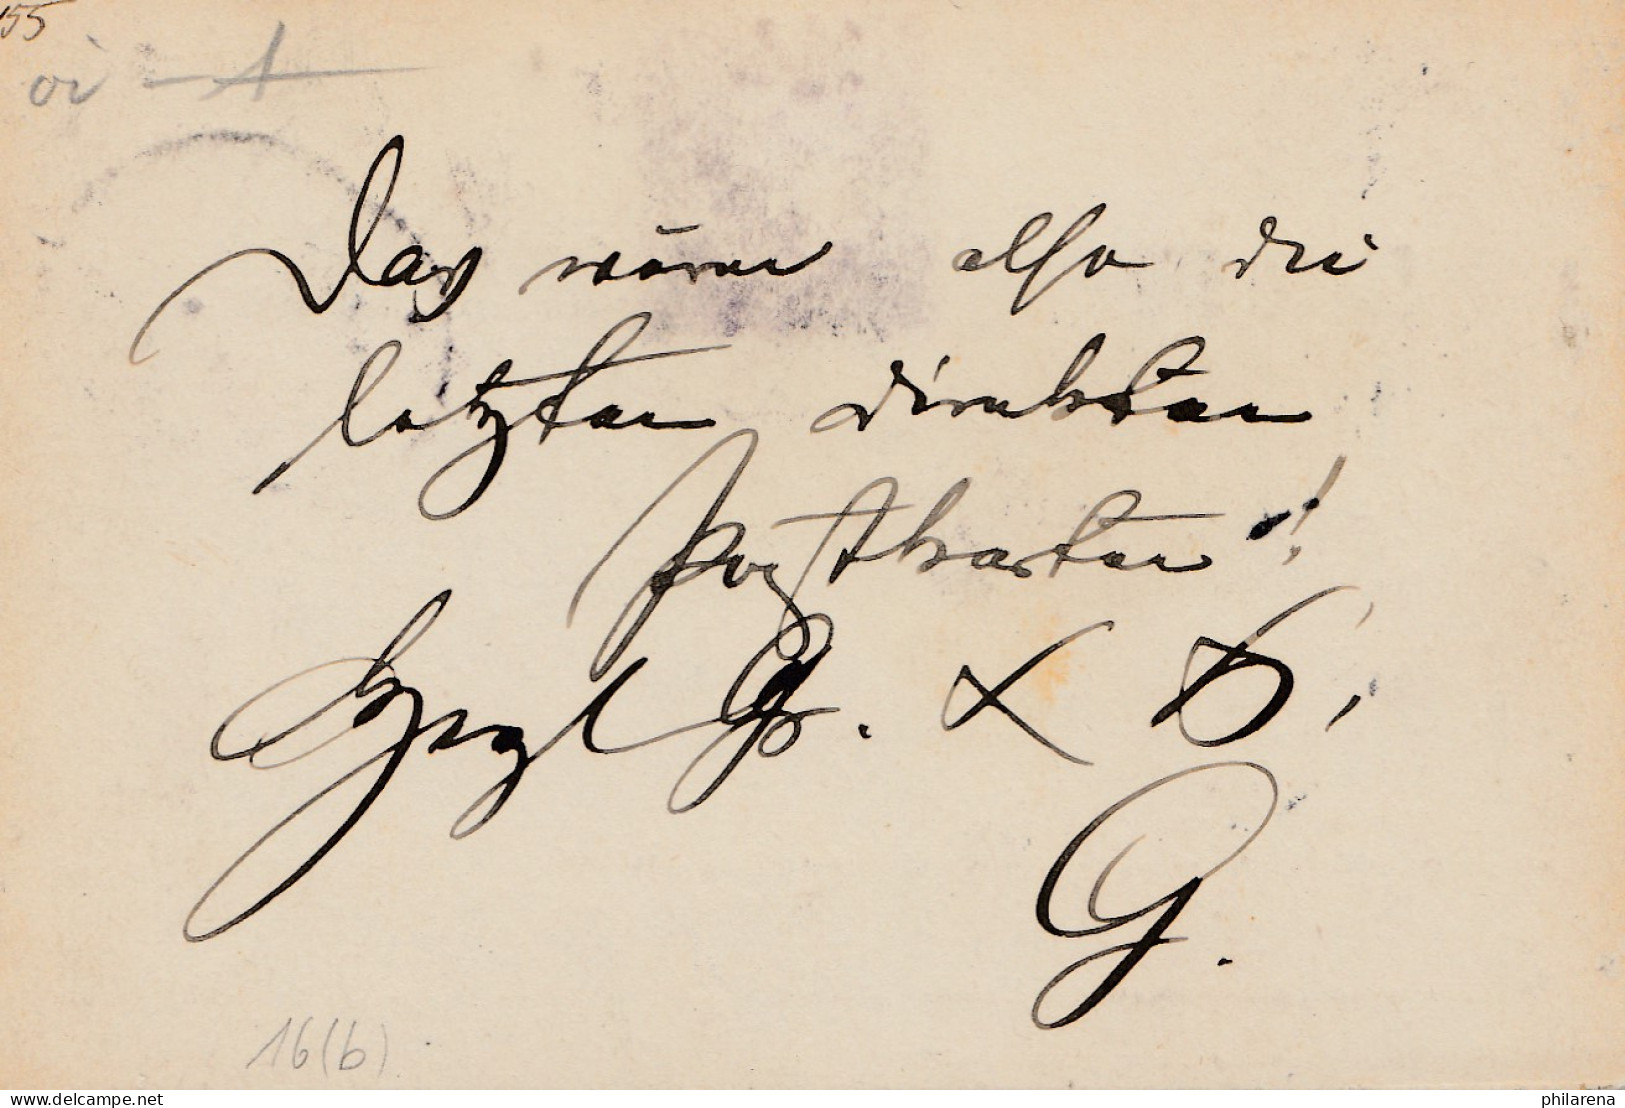 155
Das wären also die
letzten direkten
Postkarten!
Herzl Gr. & K.
G.
16(b)
www.delcampe.net
philarena